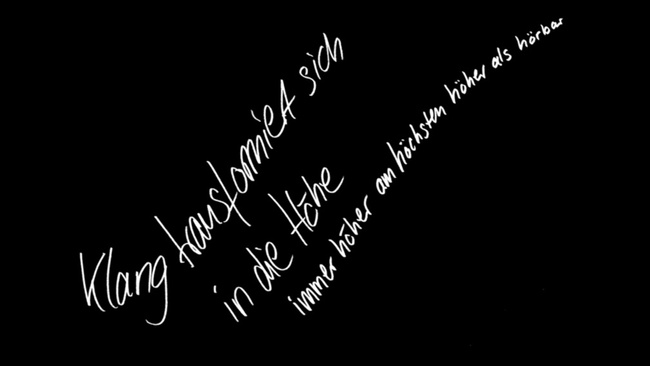 Klang transformiert sich
in die Höhe
immer höher am höchsten höher als hörbar